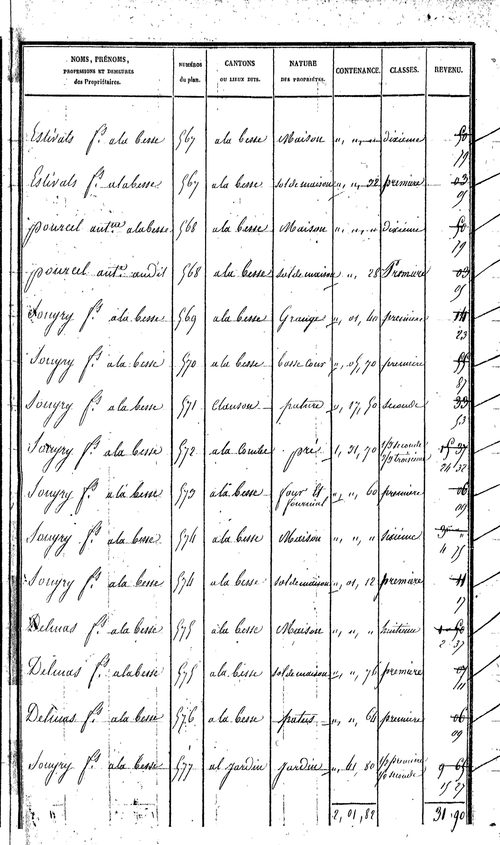 NOMS, PRÉNOMS, PROFESSIONS ET DEMEURES des Propriétaires. NUMÉROS du plan. CANTONS OU LIEUX DITS. NATURE DES PROPRIÉTÉS. CONTENANCE. CLASSES. REVENU.
Estivals f.s a la besse 567 a la besse Maison " " " dixieme 50
19
Estivals f.s a la besse 567 a la besse sol de maison " " 32 premiere 03
05
pourcel ant.ne a la besse 568 a la besse Maison " " " dixieme 50
19
pourcel ant.ne audit 568 a la besse sol de maison " " 28 Premiere 03
05
Songry f.s a la besse 569 a la besse Grange " 01 40 premiere 14
23
Songry f.s a la besse 570 a la besse basse Cour " 05 70 premiere 55
87
Songry f.s a la besse 571 Clauson pature " 27 50 seconde 33
53
Songry f.s a la besse 572 a la Combe pré 1, 31, 70 1/3 seconde 15 37
2/3 troisieme 24 32
Songry f.s a la besse 573 a la besse four et " " 60 premiere 06
fournial 09
Songry f.s a la besse 574 a la besse Maison " " " sixieme 3 "
4 75
Songry f.s a la besse 574 a la besse sol de maison " 01, 12 premiere 11
17
Delmas f.s a la besse 575 a la besse Maison " " " huitieme 1 50
2 37
Delmas f.s a la besse 575 a la besse sol de maison " " 76 premiere 07
11
Delmas f.s a la besse 576 a la besse patus " " 64 premiere 06
09
Songry f.s a la besse 577 al jardin jardin " 61, 80 1/2 premiere 9 65
1/2 seconde 15 27
2, 01, 82 31, 90